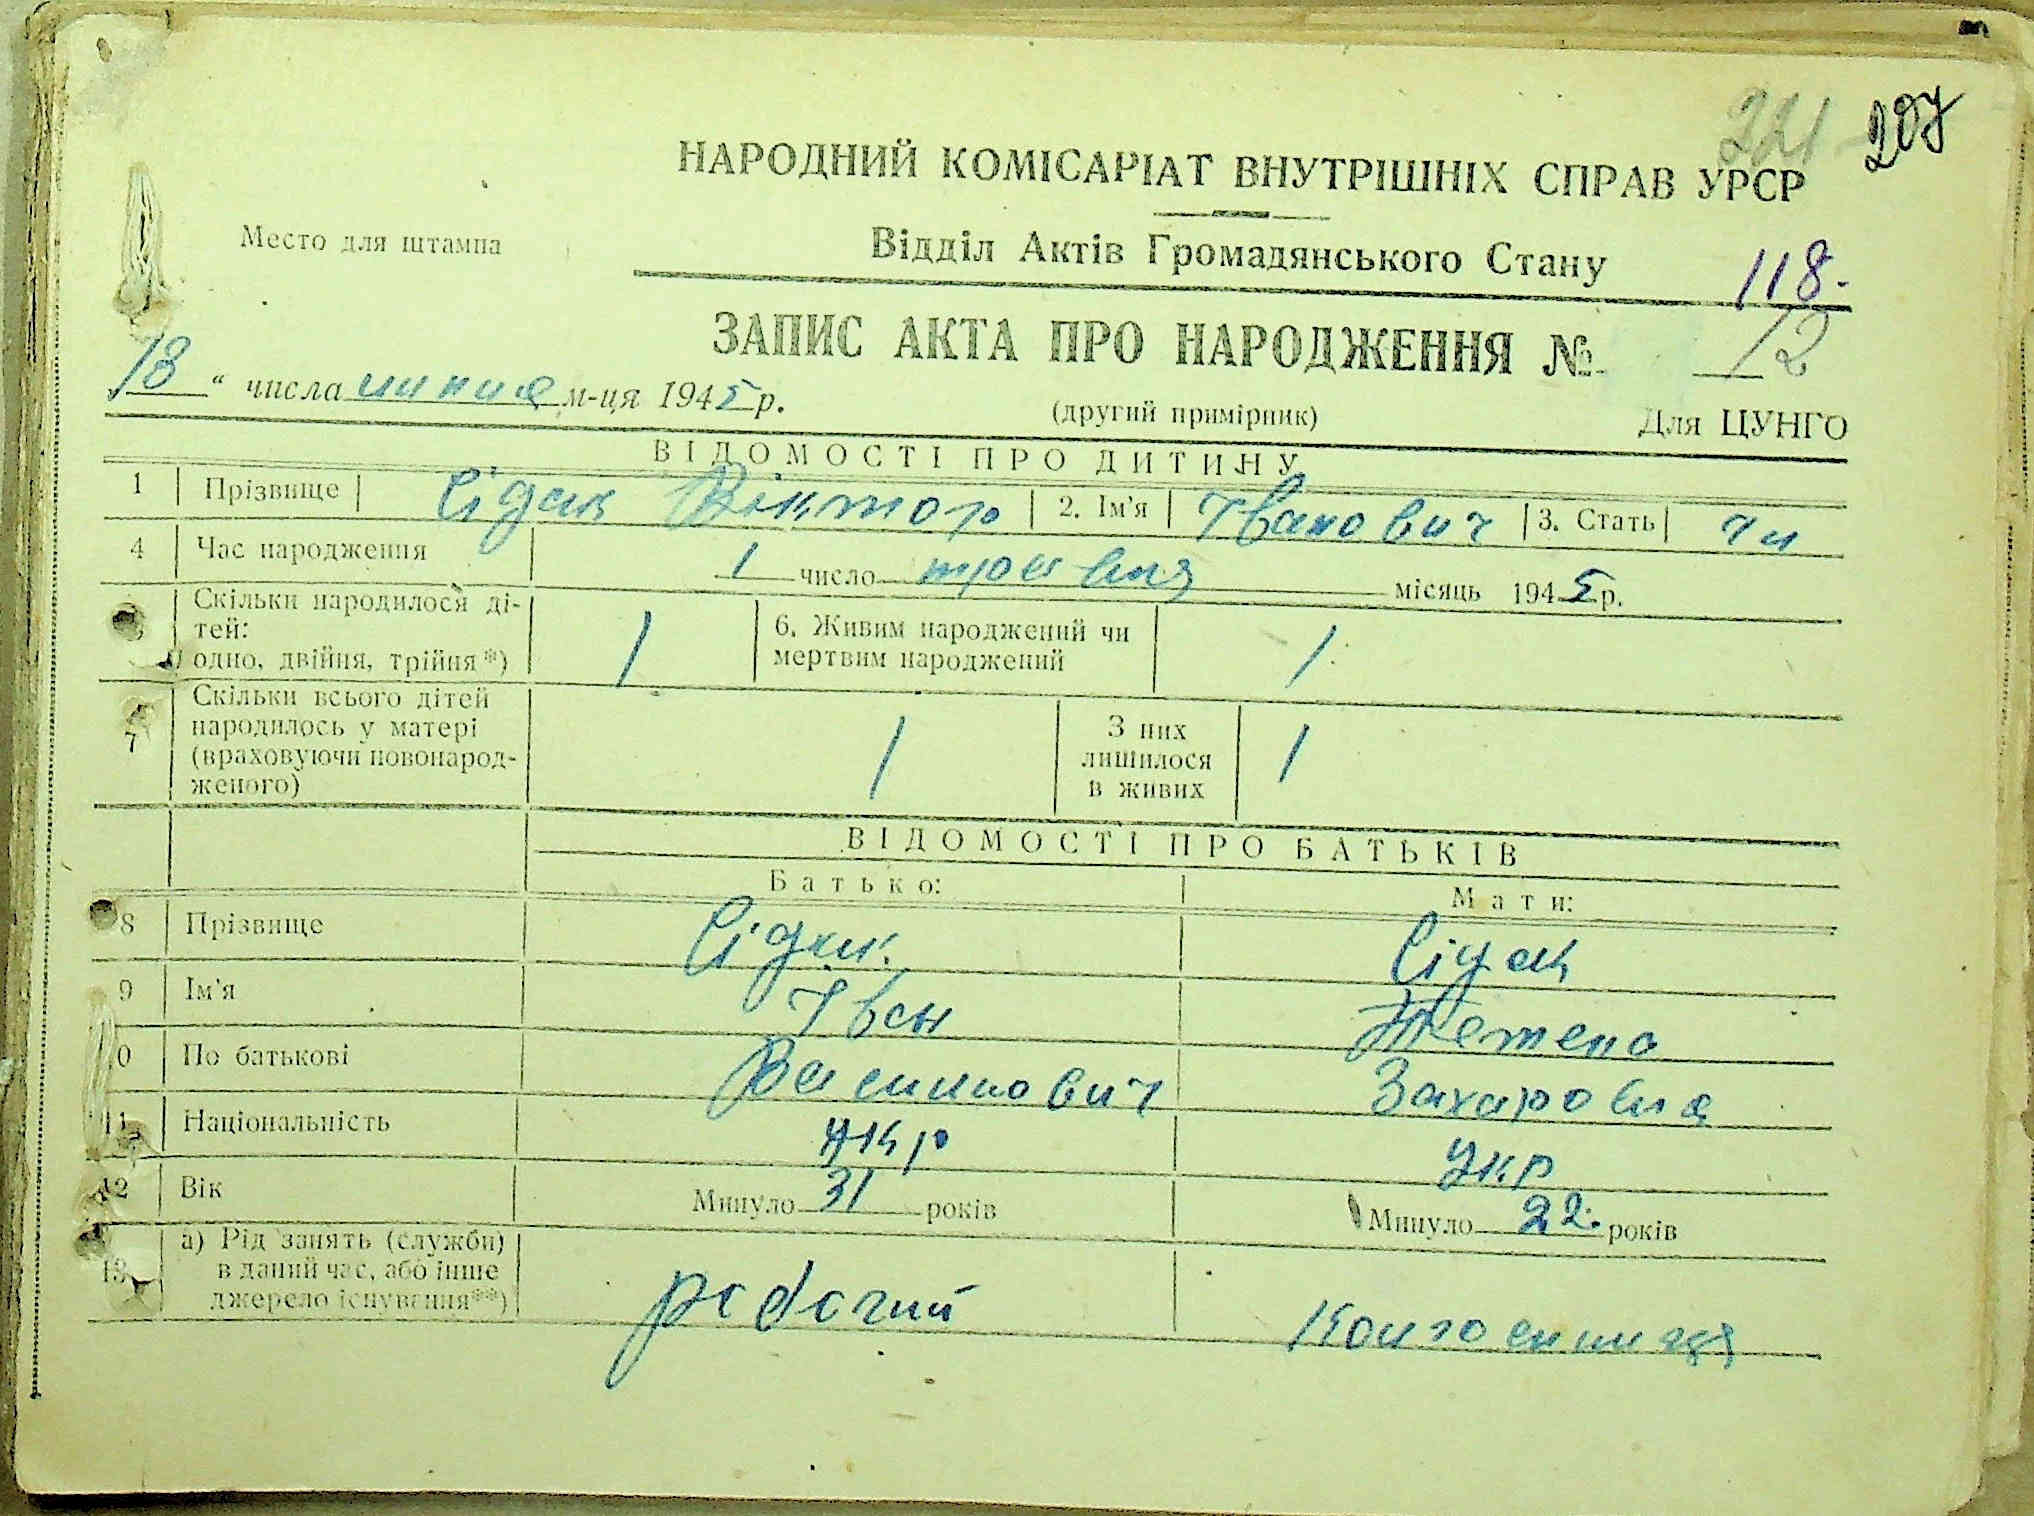 221 207
НАРОДНИЙ КОМІСАРІАТ ВНУТРІШНІХ СПРАВ УРСР
Место для штампа
Відділ Актів Громадянського Стану
118.
ЗАПИС АКТА ПРО НАРОДЖЕННЯ № 12
18 " числа липня м-ця 1945 р.
(другий примірник)
Для ЦУНГО
ВІДОМОСТІ ПРО ДИТИНУ
1 Прізвище Сідак Віктор 2. Ім'я Іванович 3. Стать чл
4 Час народження 1 число травня місяць 1945 р.
Скільки народилося ді-
тей:
одно, двійня, трійня*) 1
6. Живим народжений чи
мертвим народжений 1
7 Скільки всього дітей
народилось у матері
(враховуючи новонарод-
женого) 1
З них
лишилося
в живих 1
ВІДОМОСТІ ПРО БАТЬКІВ
Батько: Мати:
8 Прізвище Сідак. Сідак
9 Ім'я Іван
10 По батькові Василович Захаровна
11 Національність Укр Укр
12 Вік Минуло 31 років Минуло 22. років
13 а) Рід занять (служби)
в даний час, або інше
джерело існування**)
робочий Колгоспниця